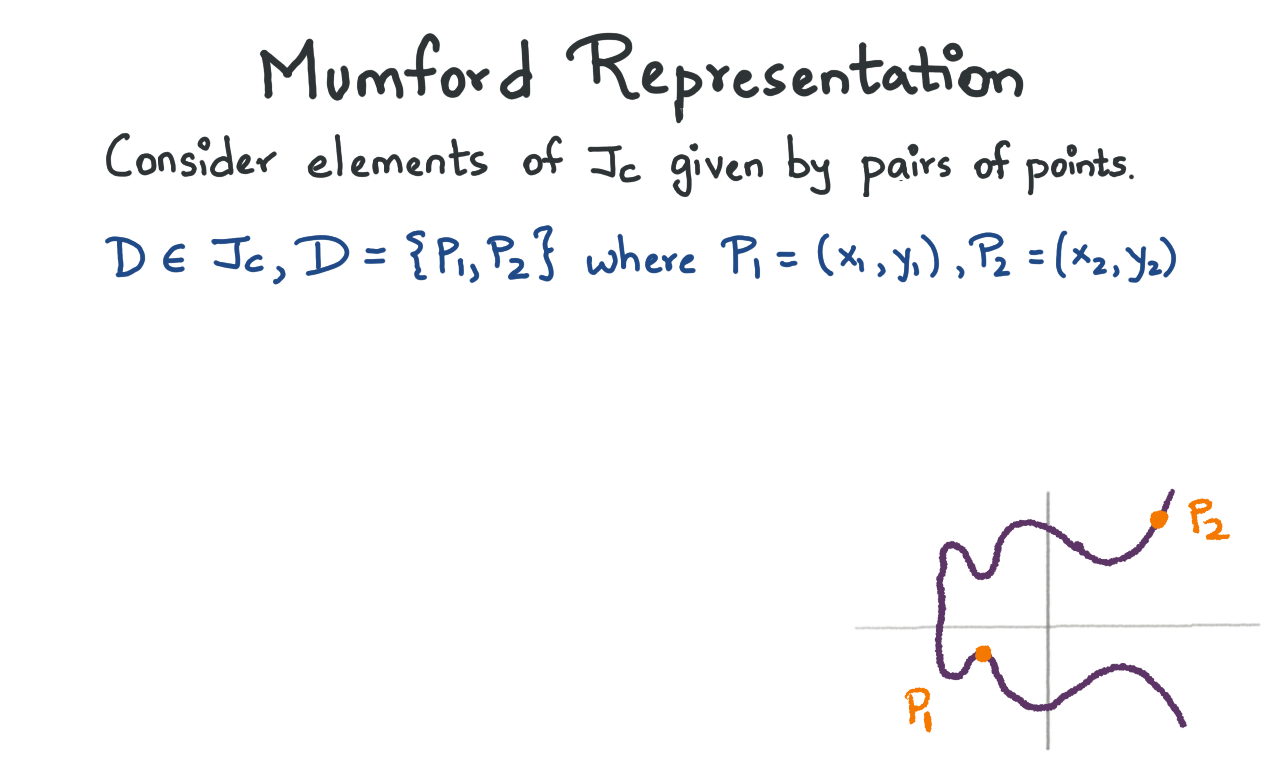 Mumford Representation
Consider elements of J_C given by pairs of points.
D ∈ J_C, D = {P₁, P₂} where P₁ = (x₁, y₁), P₂ = (x₂, y₂)
P₂
P₁